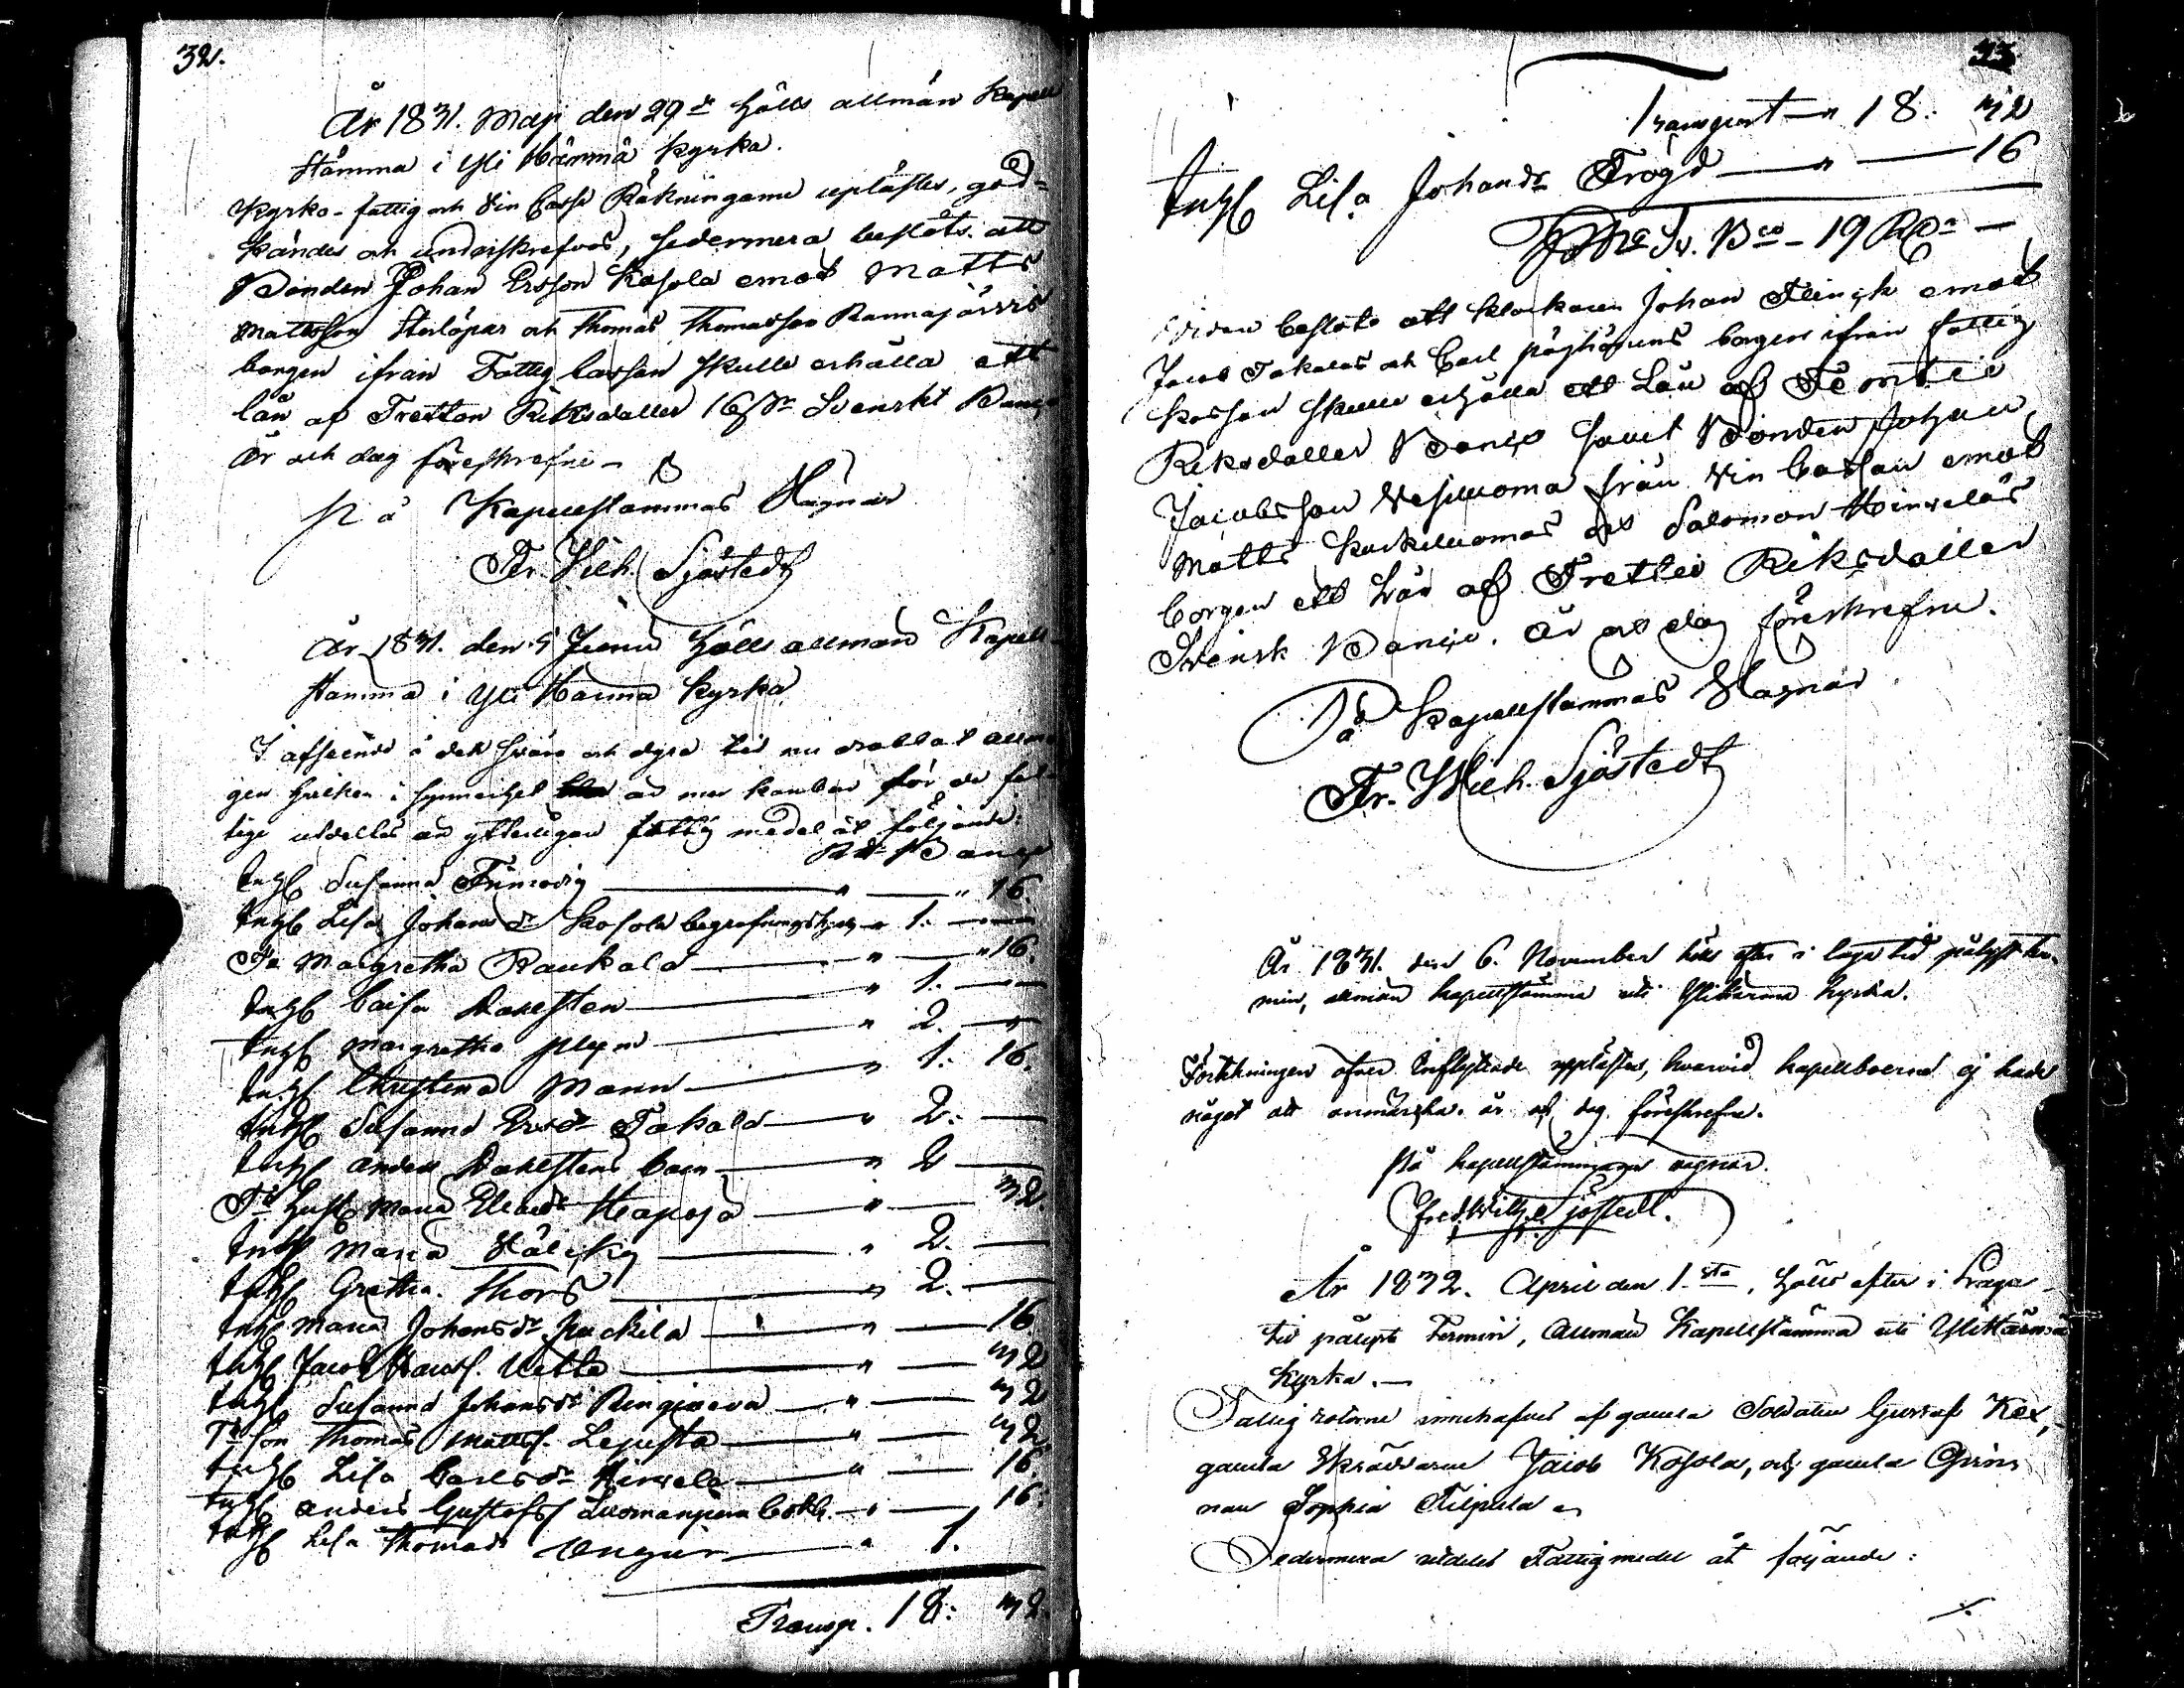 32.
År 1831. Maji den 29de hölls allmän Kapell
stämma i Yli Härmä Kyrka.
Kyrko- fattig och Vin Cassæ Räkningarne uplästes, god-
kändes och underskrefvos, sedermera beslöts att
Bonden Johan Ersson Kosola emot Matts
Mattsson Herlöpas och Thomas Thomasson Rannajärvis
borgen ifrån Fattig Cassan skulle erhålla ett
lån af Tretton Riksdaller 16 s:r Svenskt Banco
År och dag föreskrefne —
På Kapellstämmas Vägnar
Fr. Wilh. Sjöstedt
År 1831. den 5 Junii hölls allmän Kapell-
stämma i Yli Härmä Kyrka
I afseende å den svåra och dyra tid nu drabbat allmo
gen hvilken i synnerhet är mer kanbar för de fat-
tige utdeltes an ytterligare fattig medel åt följande:
Rdr Banco
Inhs Susanna Finnvig — " — " 16.
Inhs Lisa Johansdr Kosola begrafningshjelp " 1. —
Do Margretha Raukala — " — " 16.
Inhs Caisa Dahlsten — " 1. —
Inhs Margretha Alexn — " 2. —
Inhs Christina Mann — " 1. 16.
Inhs Susanna Ersdr Takala — " 2. —
Inhs Anders Dahlstens barn — " 2 —
To Hust. Maria Eliædr Haapoja — " — 32.
Inhs Maria Håliskj — " 2. —
Inhs Gretha Thors — " 2. —
Inhs Maria Johansdr Puckila — " — 16
Inhs Jacob Hansss. Vetto — " — 32
Inhs Susanna Johansdr Rengivova — " — 32
To son Thomas Mattss. Lepistö — " — 32
Inhs Lisa Carlsdr Hirvelä — " — 16.
Inhs Anders Gustafss Luomanperä — " — 16.
Inhs Lisa Thomædr Ungur — " 1.
Transp. 18: 32.
33
Transport — " 18. 32
Inhs Lisa Johansdr Frögd — " — 16
Sv. Bco — 19 Rdr —
Vidare beslöts att Klockaren Johan Flinck emot
Jacob Takalas och Carl Pöyhönens borgen ifrån fattig
Kassan skulle erhålla ett Lån af Femtio
Riksdaller Banco samt Bonden Johan
Jacobsson Vesiluoma från Vin Cassan emot
Matts Kuckiluomas och Salomon Heikkiläs
borgen ett Lån af Trettio Riksdaller
Svensk Banco. År och dag föreskrefne.
På Kapellstämmas Vägnar
Fr. Wilh. Sjöstedt
År 1831. den 6. November höls efter i laga tid pålyst ter-
min, allmän kapellstämma uti Ylihärmä kyrka.
Förtekningen öfver Inflyttade upplästes, hvarvid kapellboerne ej hade
något att anmärka. år och dag föreskrefne.
På kapellstämmans vägnar.
Fred. Wilh. Sjöstedt.
År 1832. April den 1sta. hölls efter i Laga
tid pålyst Termin, Allmän Kapellstämma uti Ylihärmä
Kyrka. —
Fattig rotorne innehafves af gamla Soldaten Gustaf Kex,
gamla Skräddaren Jacob Kosola, och gamla Qvin
nan Sophia Filpula
Sedermera utdeltes Fattigmedel åt följande: